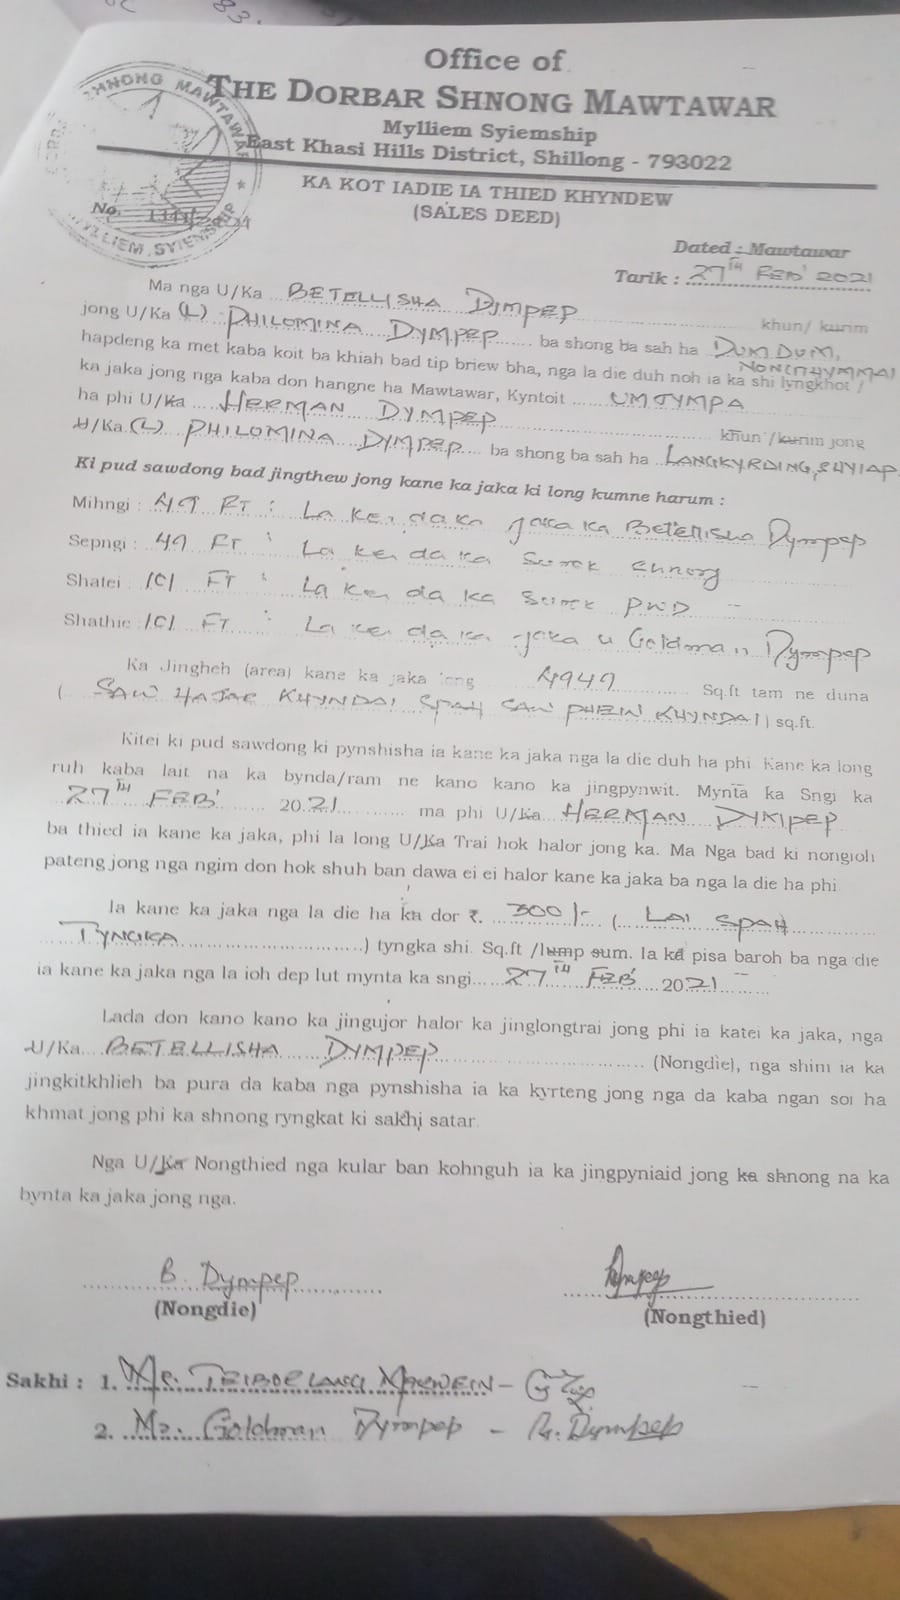 83.
Office of
THE DORBAR SHNONG MAWTAWAR
Mylliem Syiemship
East Khasi Hills District, Shillong - 793022
SHNONG MAWTAWAR
MYLLIEM SYIEMSHIP
No.
KA KOT IADIE IA THIED KHYNDEW
(SALES DEED)
Dated : Mawtawar
Tarik : 27TH FEB' 2021
Ma nga U/Ka BETELLISHA DYMPEP
jong U/Ka (L) PHILOMINA DYMPEP khun/ kurim
ba shong ba sah ha DUM DUM, NONGTHYMMAI
hapdeng ka met kaba koit ba khiah bad tip briew bha, nga la die duh noh ia ka shi lyngkhot
ka jaka jong nga kaba don hangne ha Mawtawar, Kyntoit UMJYMPA
ha phi U/Ka HERMAN DYMPEP khun /kurim jong
U/Ka (L) PHILOMINA DYMPEP ba shong ba sah ha LANGKYRDING,
Ki pud sawdong bad jingthew jong kane ka jaka ki long kumne harum :
Mihngi : 49 FT : La ker da ka jaka ka Betellisha Dympep
Sepngi : 49 FT : La ker da ka surok shnong
Shatei : 101 FT : La ker da ka surok PWD
Shathie : 101 FT : La ker da ka jaka u Goldman Dympep
Ka Jingheh (area) kane ka jaka long 4949 Sq.ft tam ne duna
( SAW HAJAR KHYNDAI SPAH SAW PHEW KHYNDAI ) sq.ft.
Kitei ki pud sawdong ki pynshisha ia kane ka jaka nga la die duh ha phi. Kane ka long
ruh kaba lait na ka bynda/ram ne kano kano ka jingpynwit. Mynta ka Sngi ka
27TH FEB' 2021 ma phi U/Ka HERMAN DYMPEP
ba thied ia kane ka jaka, phi la long U/Ka Trai hok halor jong ka. Ma Nga bad ki nongioh
pateng jong nga ngim don hok shuh ban dawa ei ei halor kane ka jaka ba nga la die ha phi.
Ia kane ka jaka nga la die ha ka dor ₹. 300/- ( LAI SPAH
TYNGKA ) tyngka shi. Sq.ft /lump sum. Ia ka pisa baroh ba nga die
ia kane ka jaka nga la ioh dep lut mynta ka sngi 27TH FEB' 2021
Lada don kano kano ka jingujor halor ka jinglongtrai jong phi ia katei ka jaka, nga
U/Ka BETELLISHA DYMPEP (Nongdie), nga shim ia ka
jingkitkhlieh ba pura da kaba nga pynshisha ia ka kyrteng jong nga da kaba ngan soi ha
khmat jong phi ka shnong ryngkat ki sakhi satar.
Nga U/Ka Nongthied nga kular ban kohnguh ia ka jingpyniaid jong ka shnong na ka
bynta ka jaka jong nga.
B. Dympep
(Nongdie)
(Nongthied)
Sakhi : 1. Mr. TEIBORLANG MAWEIN -
2. Mr. Goldman Dympep - G. Dympep